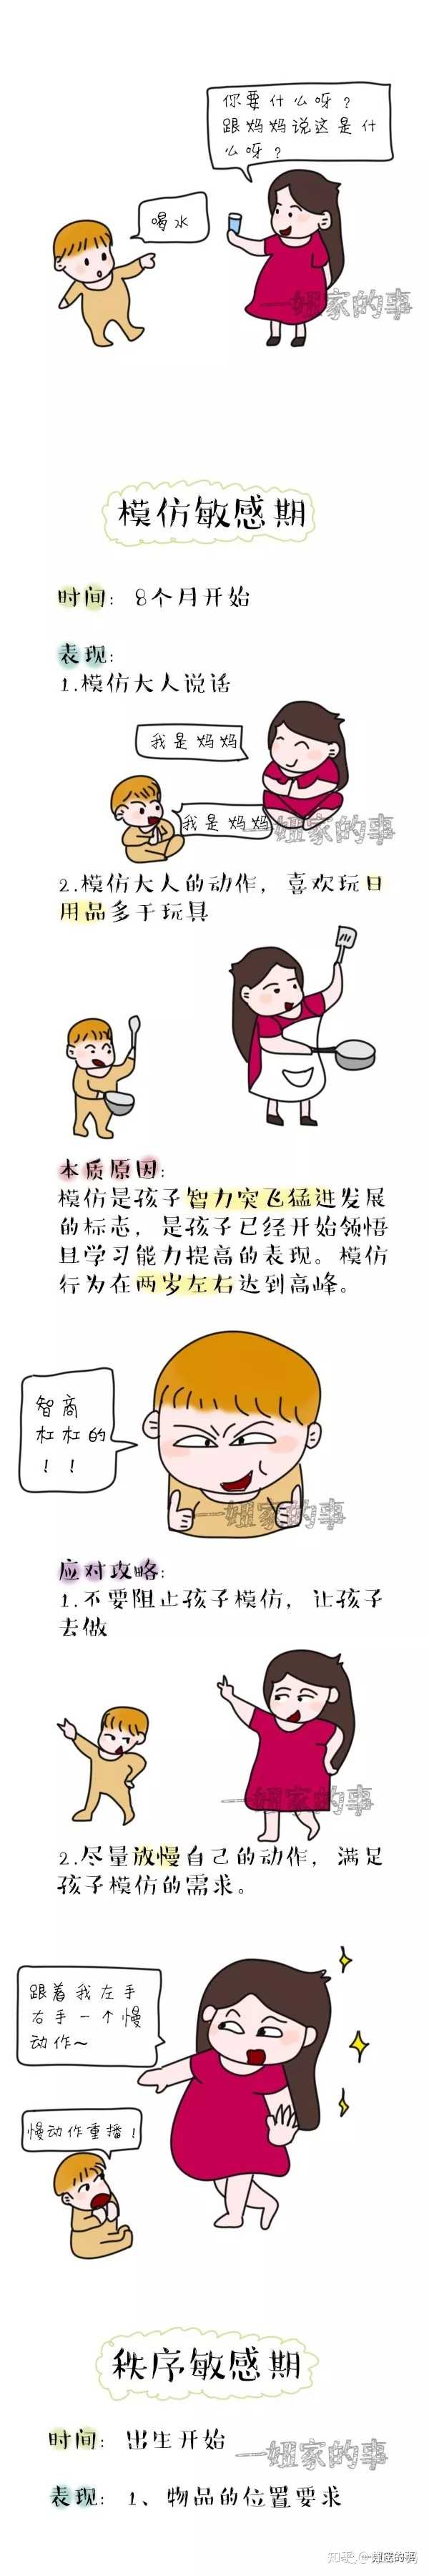 你要什么呀？
跟妈妈说这是什
么呀？
喝水
一妞家的事
模仿敏感期
时间：8个月开始
表现：
1.模仿大人说话
我是妈妈
我是妈妈
一妞家的事
2.模仿大人的动作，喜欢玩日
用品多于玩具
本质原因：
模仿是孩子智力突飞猛进发展
的标志，是孩子已经开始领悟
且学习能力提高的表现。模仿
行为在两岁左右达到高峰。
智商
杠杠的
！！
一妞家的事
应对攻略：
1.不要阻止孩子模仿，让孩子
去做
一妞家的事
2.尽量放慢自己的动作，满足
孩子模仿的需求。
跟着我左手
右手一个慢
动作~
慢动作重播！
秩序敏感期
时间：出生开始
一妞家的事
表现：1、物品的位置要求
知乎
一妞家的事